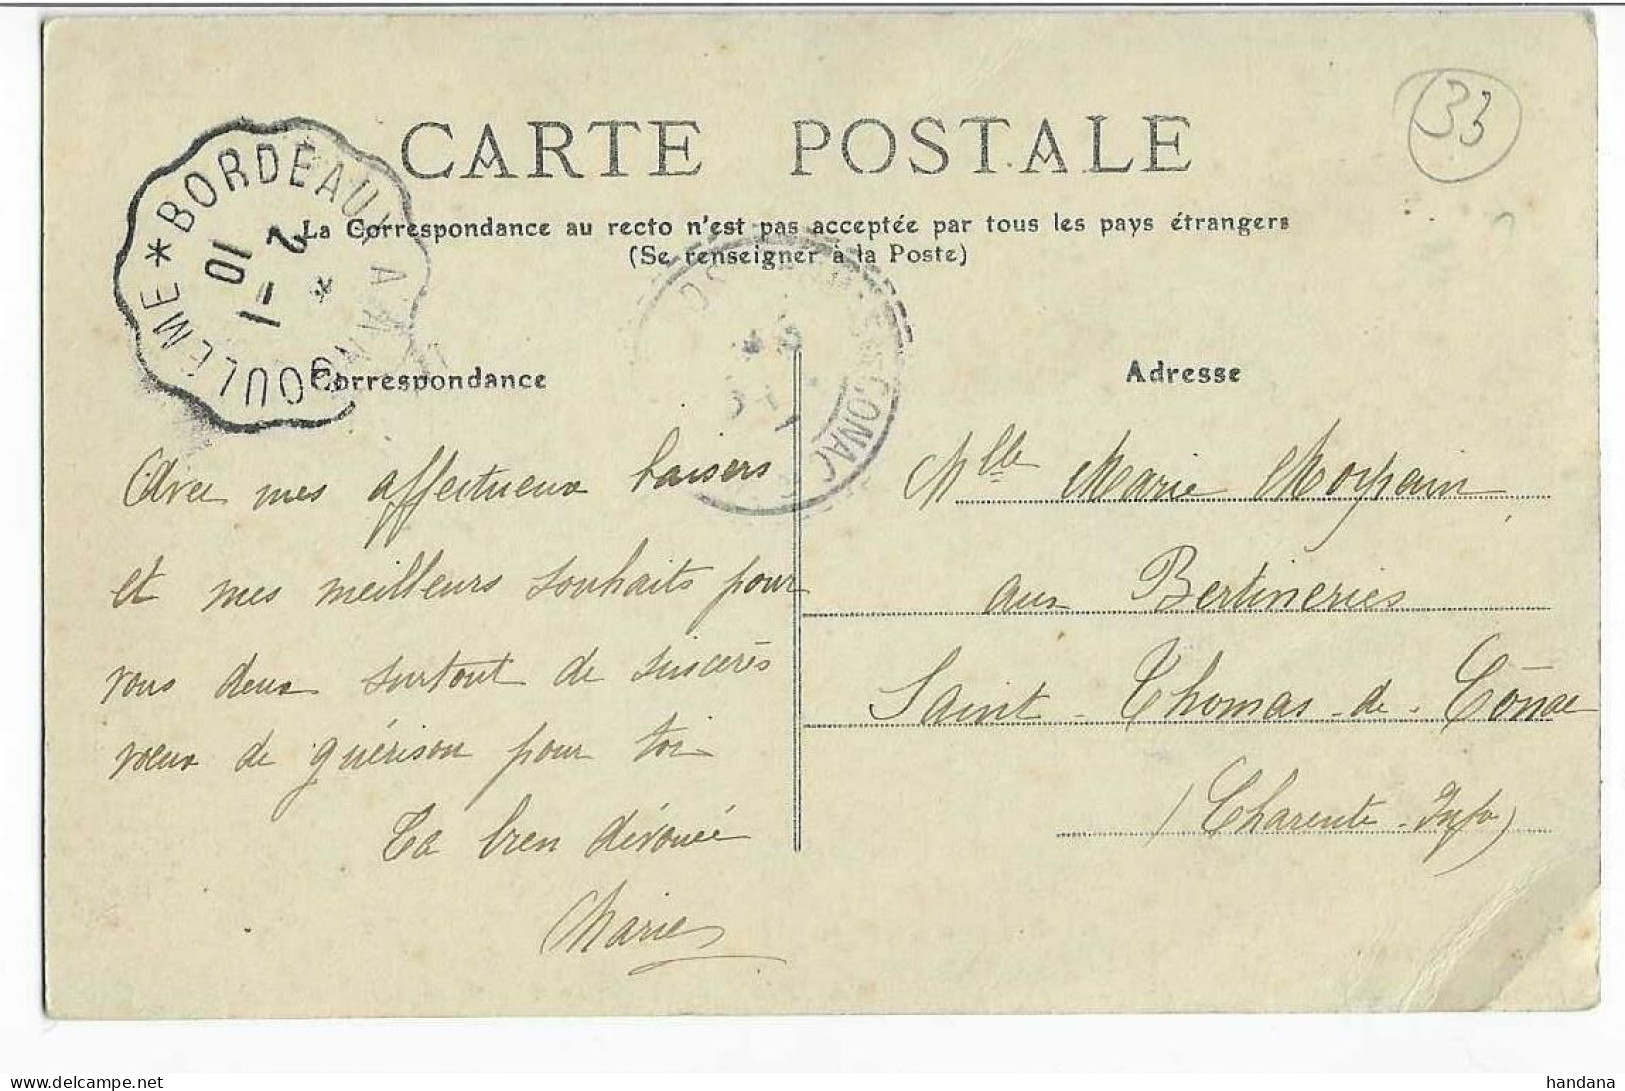 CARTE POSTALE
33
La Correspondance au recto n'est pas acceptée par tous les pays étrangers
(Se renseigner à la Poste)
BORDEAUX A ANGOULEME *
2 - 1
10
CONAC
Correspondance
Avec mes affectueux baisers
et mes meilleurs souhaits pour
vous deux surtout de sincères
vœux de guérison pour toi
Ta bien dévouée
Marie
Adresse
Mlle Marie
aux Bertineries
Saint-Thomas-de-Cônac
(Charente-Infre)
delcampe.net
handana